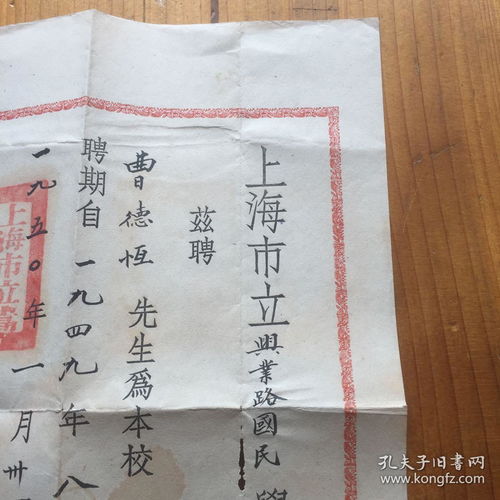 上海市立興業路國民學
茲聘
曹德恆 先生爲本校
聘期自 一九四九年 八
一九五〇年 一月卅
上海市立
孔夫子旧书网
www.kongfz.com